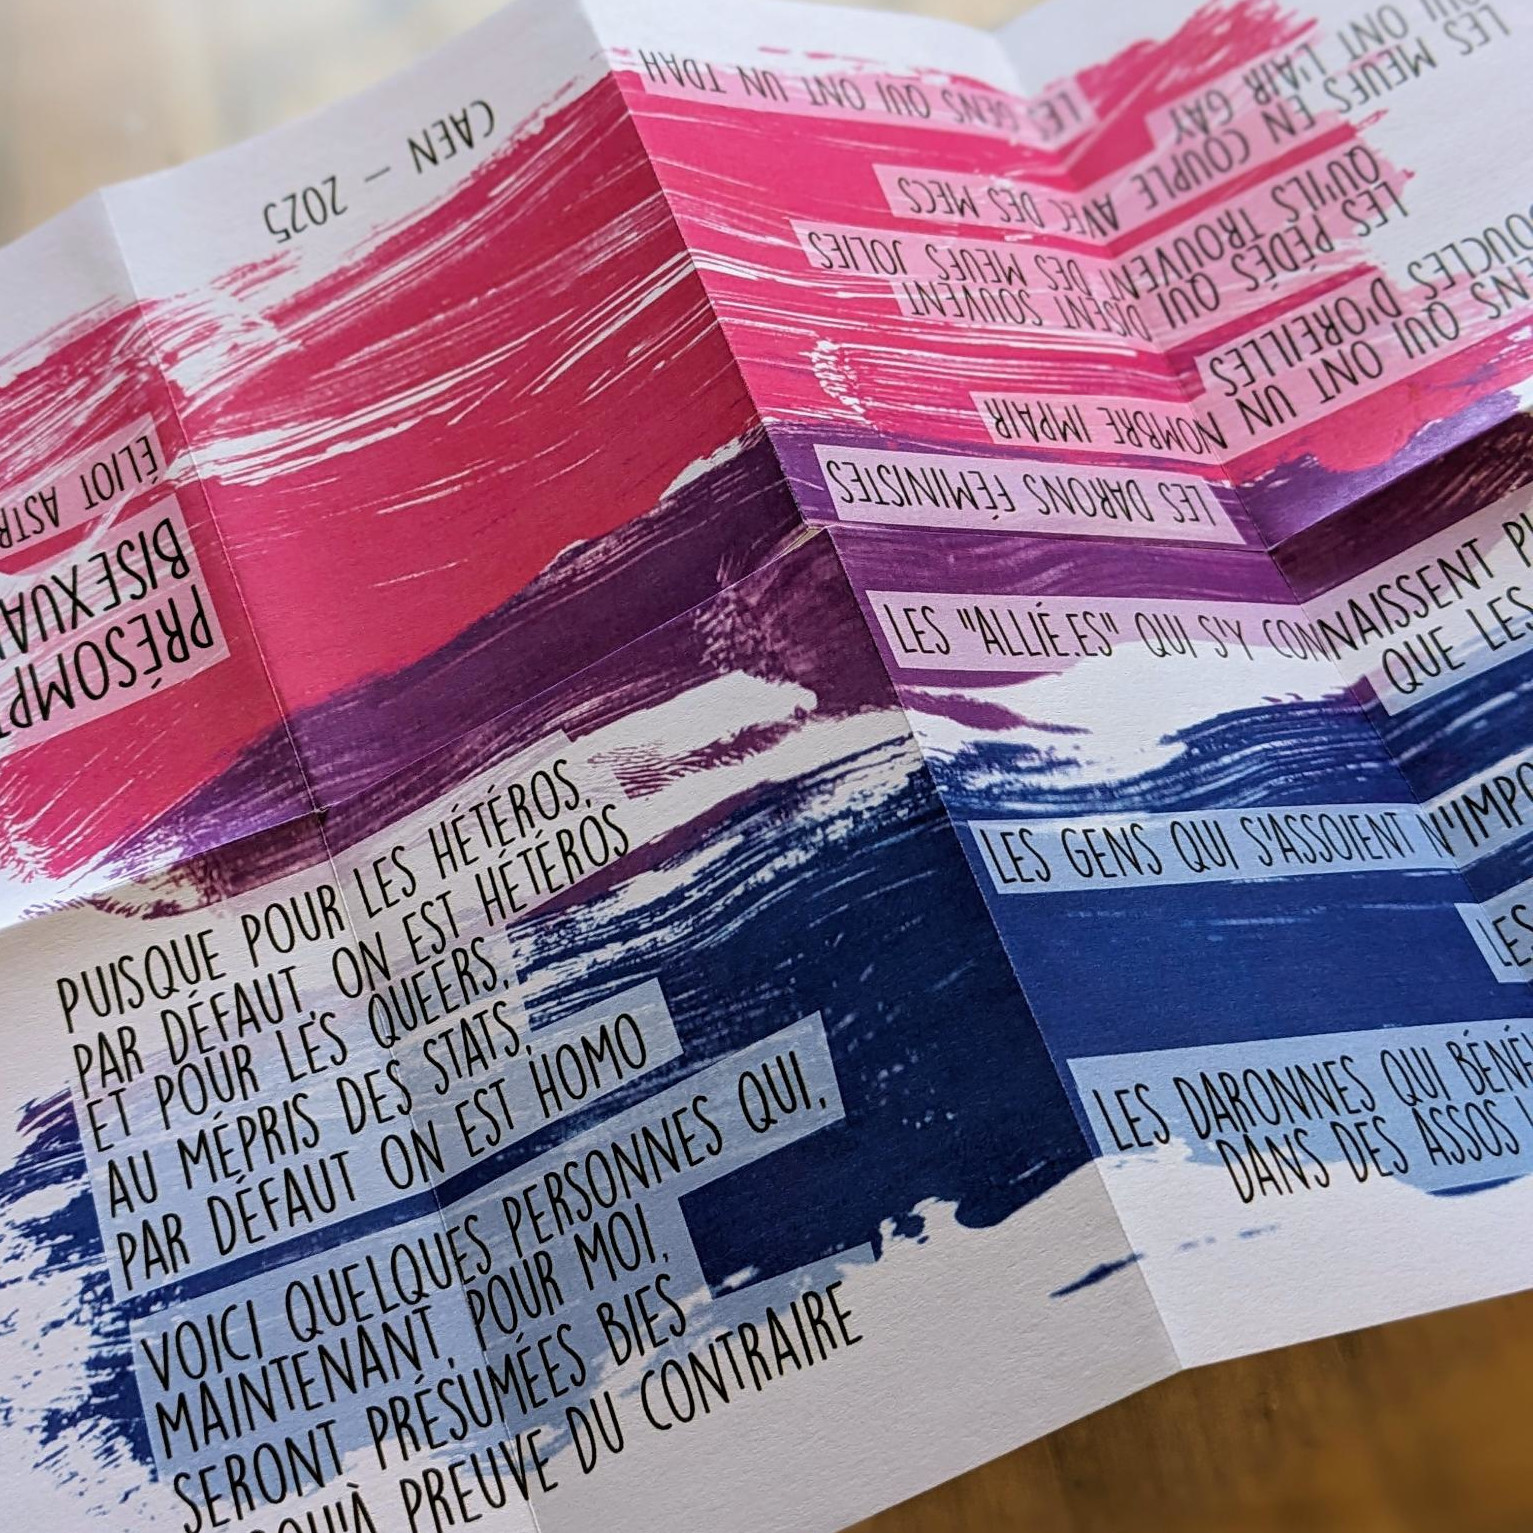 PRÉSOMPT
BISEXUA
ÉLIOT ASTR
CAEN – 2025
PUISQUE POUR LES HÉTÉROS,
PAR DÉFAUT, ON EST HÉTÉROS
ET POUR LES QUEERS,
AU MÉPRIS DES STATS,
PAR DÉFAUT ON EST HOMO
VOICI QUELQUES PERSONNES QUI,
MAINTENANT, POUR MOI,
SERONT PRÉSUMÉES BIES
QU'À PREUVE DU CONTRAIRE
LES "ALLIÉ.ES" QUI S'Y CONNAISSENT
QUE LES
LES GENS QUI S'ASSOIENT N'IMPO
LES
LES DARONNES QUI BÉNÉ
DANS DES ASSOS
LES DARONS FÉMINISTES
QUI ONT UN
NOMBRE IMPAIR
OUCLES D'OREILLES
LES PÉDÉS QUI
DISENT SOUVENT
QU'ILS TROUVENT DES MEUFS JOLIES
LES MEUFS EN COUPLE AVEC DES MECS
QUI ONT L'AIR GAY
LES GENS QUI ONT UN TDAH